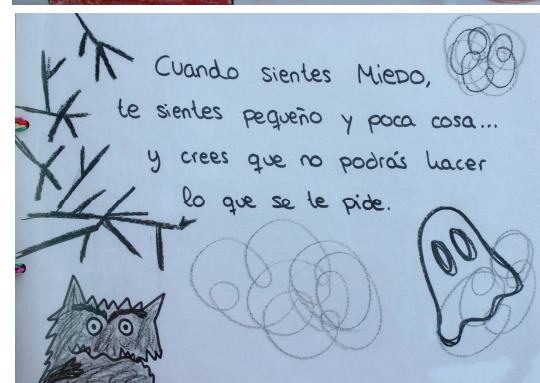 Cuando sientes MIEDO,
te sientes pequeño y poca cosa...
y crees que no podrás hacer
lo que se te pide.